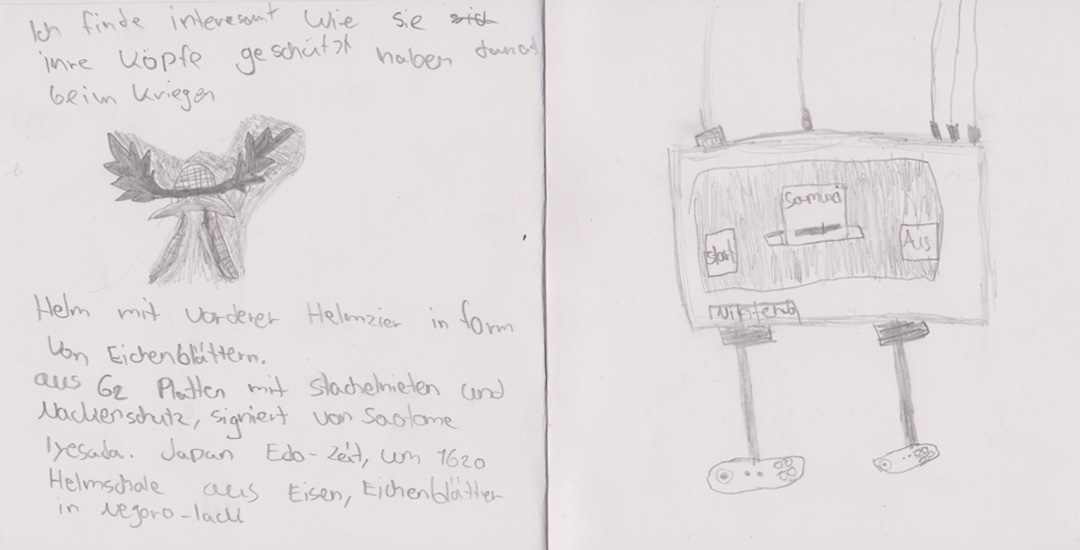 Ich finde interesant wie sie sich
ihre Köpfe geschützt haben damals
beim Kriegen
Helm mit vorderer Helmzier in form
von Eichenblättern.
aus 62 Platten mit stachelnieten und
Nackenschutz, signiert von Saotome
Iyesada. Japan Edo-Zeit, um 1620
Helmschale aus Eisen, Eichenblätter
in Negoro-lack
Samurai
Start
Aus
Nintendo